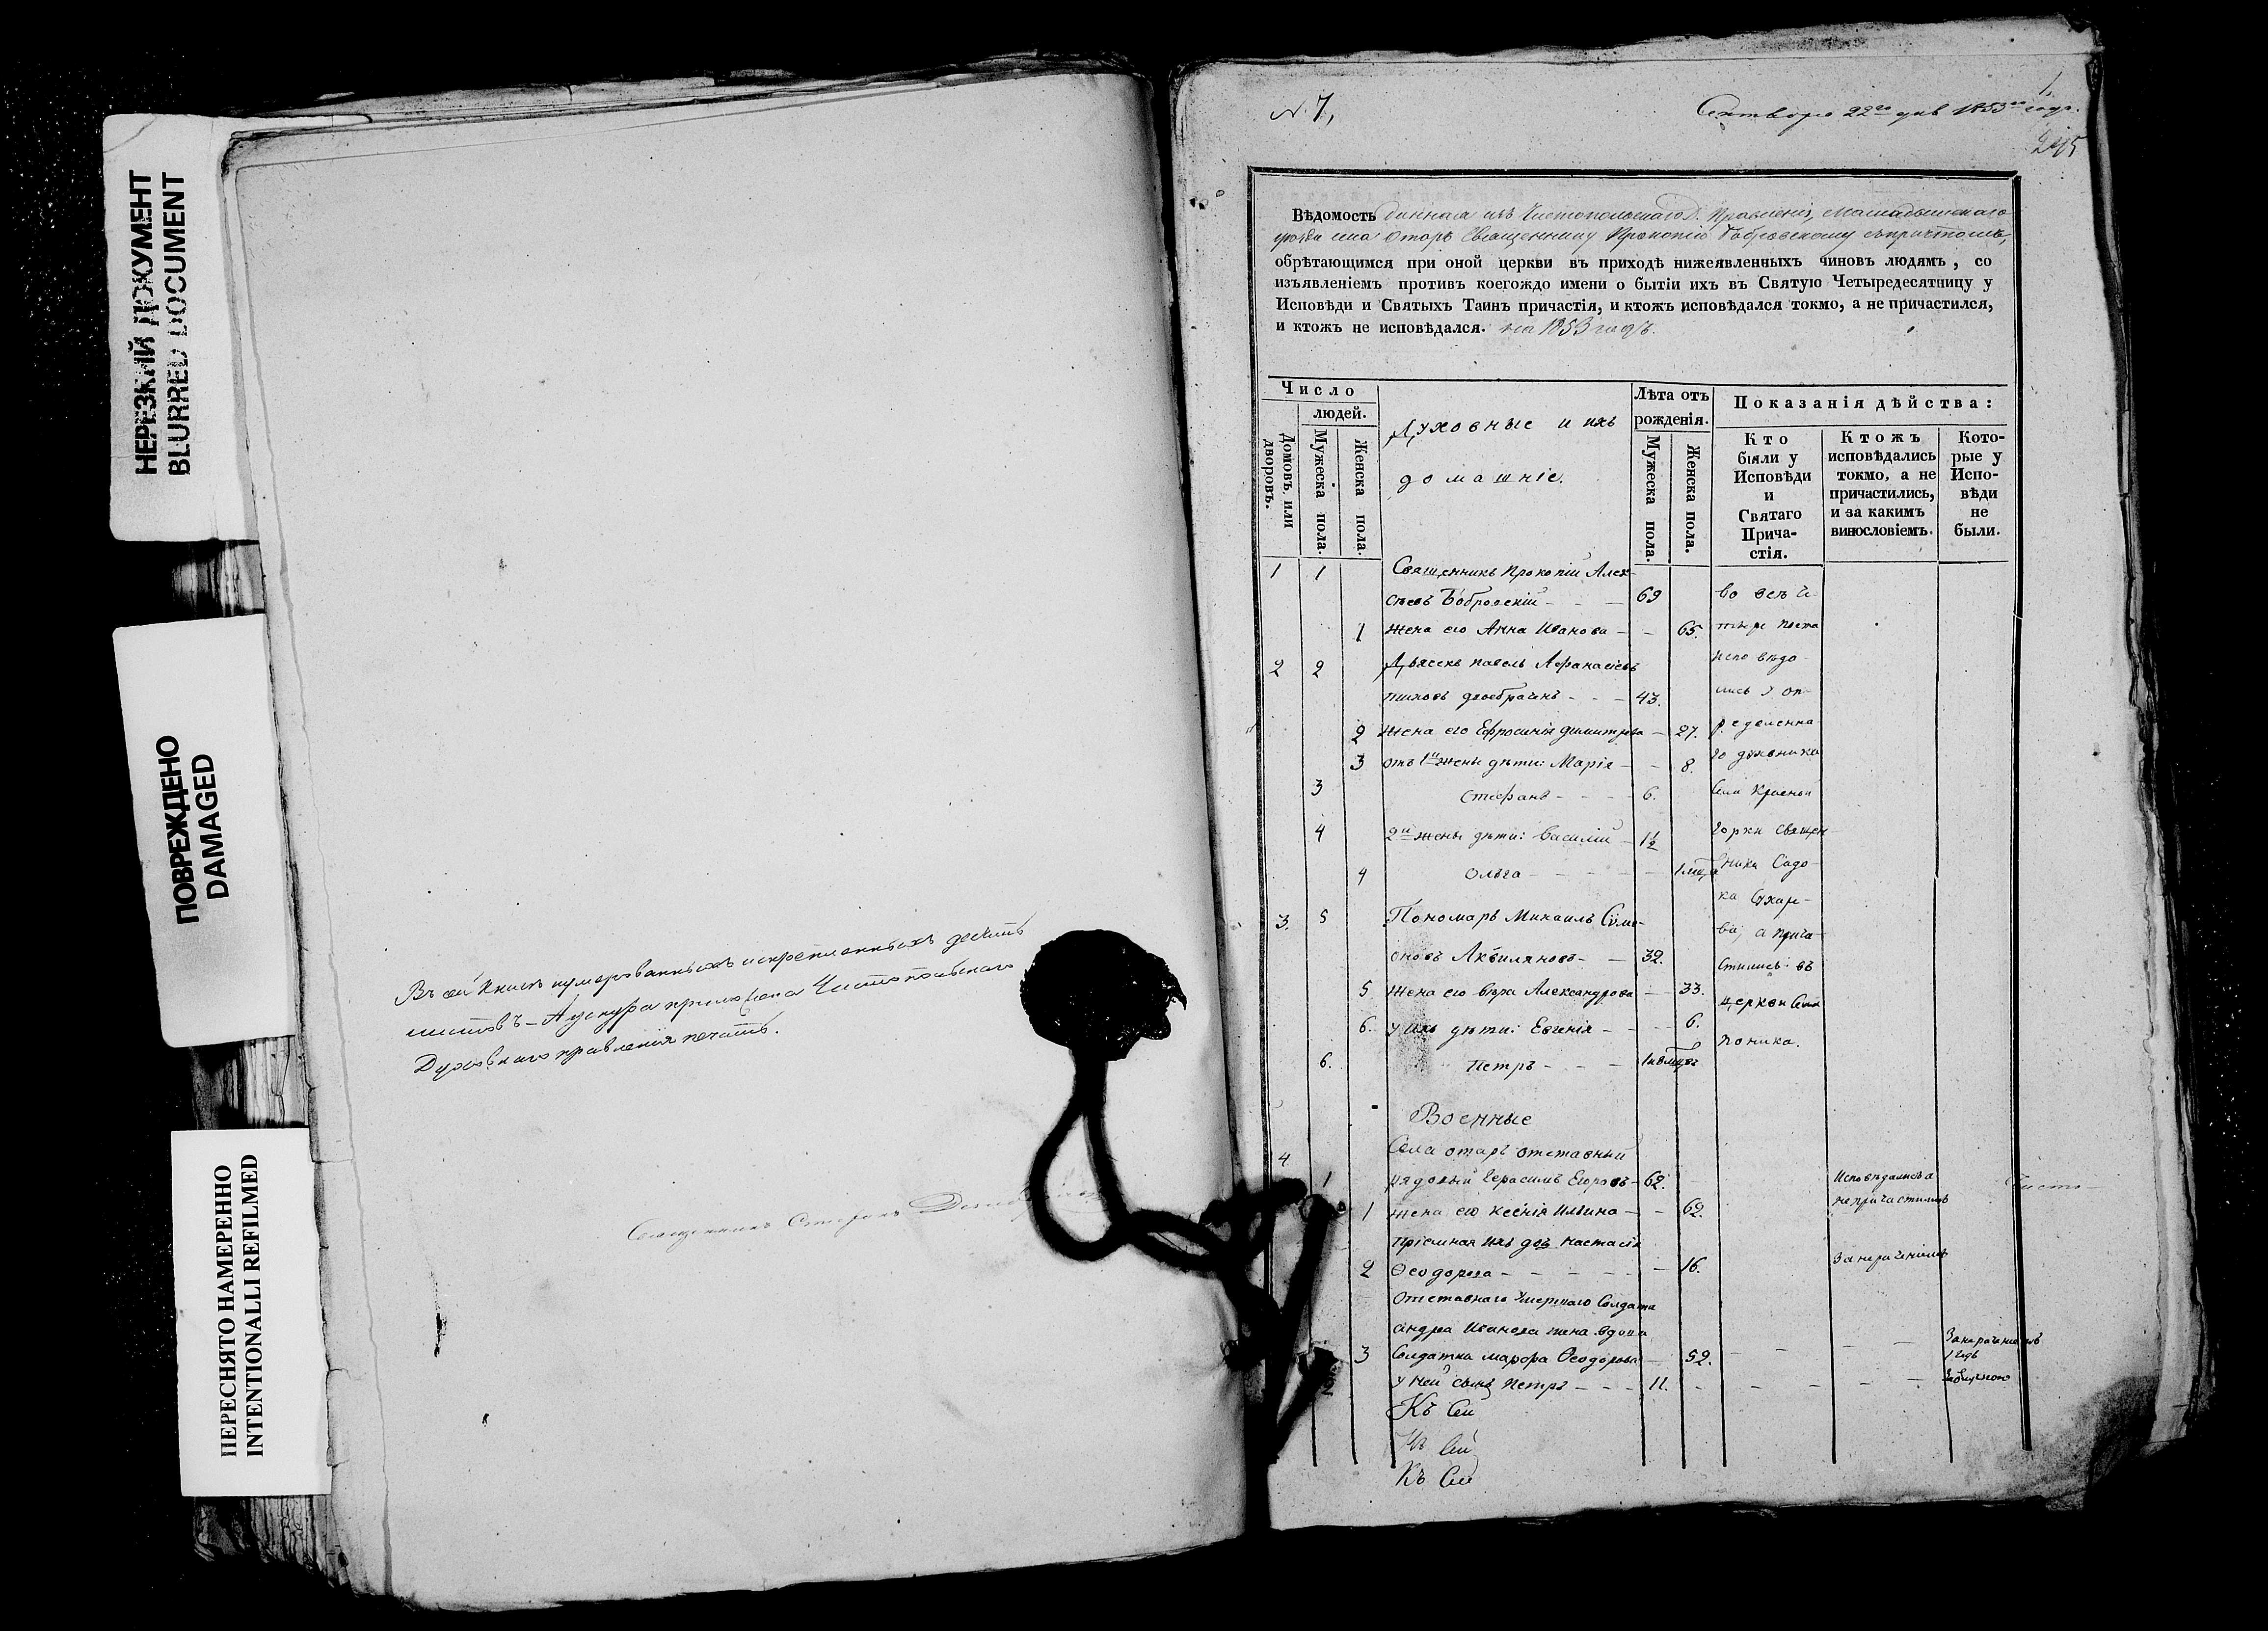 НЕРЕЗКИЙ ДОКУМЕНТ
BLURRED DOCUMENT
ПОВРЕЖДЕНО
DAMAGED
ПЕРЕСНЯТО НАМЕРЕННО
INTENTIONALLI REFILMED
Въ сей книгѣ нумерованныхъ и скрепленныхъ десять
листовъ – А у шнура приложена Чистопольскаго
Духовнаго правленія печать.
Священникъ Стефанъ
N 7,
1.
Сентября 22го дня 1853го года.
245
Вѣдомость данная изъ Чистопольскаго Д. Правленія, Мамадышскаго
уѣзда села Отаръ Священнику Прокопію Бобровскому съ причтомъ,
обрѣтающимся при оной церкви въ приходѣ нижеявленныхъ чиновъ людямъ, со
изъявленіемъ противъ коегождо имени о бытіи ихъ въ Святую Четыредесятницу у
Исповѣди и Святыхъ Таинъ причастія, и ктожъ исповѣдался токмо, а не причастился,
и ктожъ не исповѣдался. на 1853 годъ.
Число
людей.
Домовъ или дворовъ.
Мужеска пола.
Женска пола.
Духовные и ихъ
домашніе.
Лѣта отъ
рожденія.
Мужеска пола.
Женска пола.
Показанія дѣйства:
Кто
были у
Исповѣди
и
Святаго
Прича-
стія.
Ктожъ
исповѣдались
токмо, а не
причастились,
и за какимъ
винословіемъ.
Кото-
рые у
Испо-
вѣди
не
были.
1 1 Священникъ Прокопій Алек-
сѣевъ Бобровскій – – – 69 во всѣ че-
1 Жена его Анна Иванова – – 65. тыре поста
2 2 Дьячекъ Павелъ Афанасіевъ испо вѣдо-
двоебрачнъ – – – 43. лись у оп-
2 Жена его Ефросинія Димитрева – 27. ределенна-
3 отъ 1й жены дѣти: Марія – – 8. го духовника
3 Стефанъ – – – – 6. Села Красной
4 2й жены дѣти: Василій – 1½ Горки Священ-
4 Ольга – – – – – ника Садо-
ка Сухаре-
3. 5 Пономарь Михаилъ Симе- ва, а прича-
оновъ Аквиляновъ – – 32. стились въ
5 Жена его Вѣра Александрова – 33. церкви Села
6. у ихъ дѣти: Евгенія – – – 6.
6. Петръ – – –
Военные
4 Села Отаръ отставный
1 рядовый Герасимъ Егоровъ – 62. Исповѣдались а
1 Жена его Ксенія Ильина – – 62. не причастились
пріемная ихъ дочь Настасія
2 Ѳеодорова – – – – – – 16. За нераченіемъ
Отставнаго умершаго Солдата
Андрея Иванова жена вдова
3 Солдатка Марфа Ѳеодорова – 52. – – – – За нераченіемъ
1 годъ
у ней сынъ Петръ – – – 11. – – – – –
Къ Сей
Къ Сей
Къ Сей